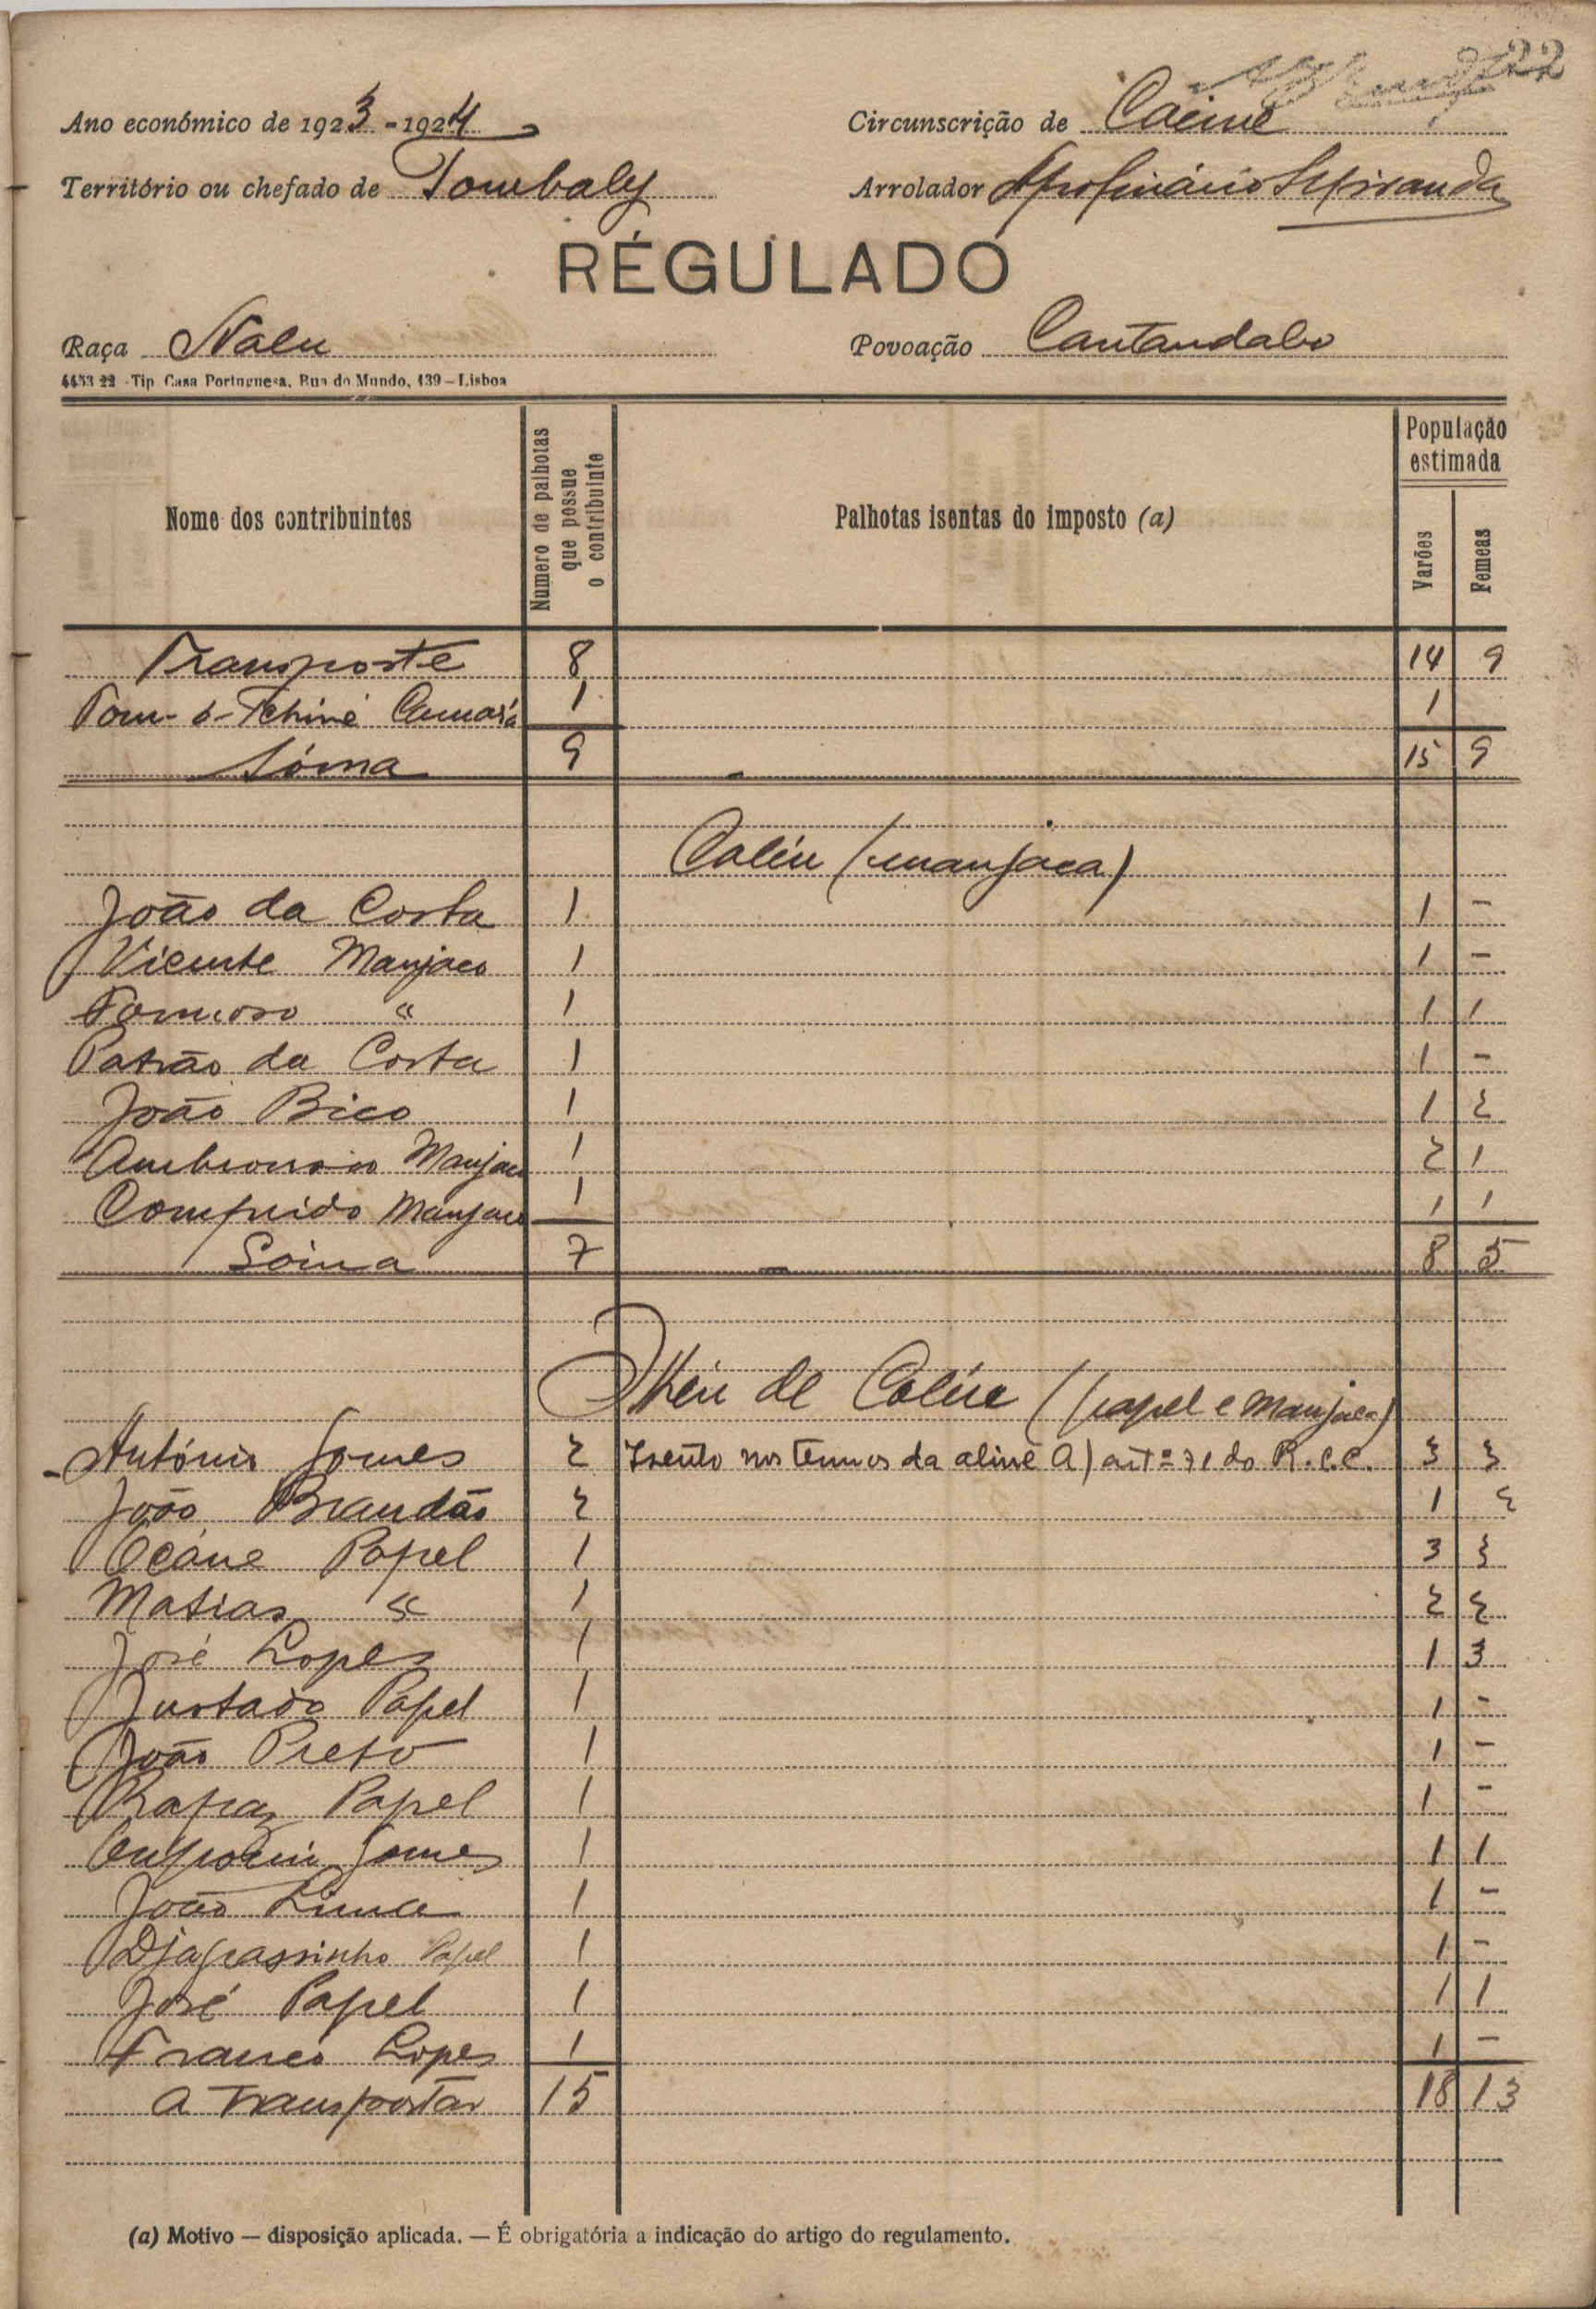 22
Ano económico de 1923-1924 Circunscrição de Cacine
Território ou chefado de Tombaly Arrolador Miranda
RÉGULADO
Raça Nalu Povoação Cantandabo
4453 22 - Tip. Casa Portuguesa, Rua do Mundo, 139 – Lisboa
Nome dos contribuintes Numero de palhotas que possue o contribuinte Palhotas isentas do imposto (a) População estimada Varões Femeas
Transporte 8 14 9
Tom- ó- Tchiné Camará 1 1
Sóma 9 15 9
Caléu (manjaca)
João da Costa 1 1 -
Vicente Manjaco 1 1 -
Formoso " 1 1 1
Patrão da Costa 1 1 -
João Bico 1 1 2
Manjaco 1 2 1
Comprido Manjaco 1 1 1
Sôma 7 8 5
Ilheu de Caléue (papel e manjaca)
António Gomes 2 Isento nos termos da aline A) artº 71 do R.C.C. 3 3
João Brandão 2 1 2
Ocáne Papel 1 3 3
Matias " 1 2 2
José Lopes 1 1 3
Papel 1 1 -
João Preto 1 1 -
Rapaz Papel 1 1 -
Gomes 1 1 1
João 1 1 -
Djagrassinho Papel 1 1 -
José Papel 1 1 1
Franco Lopes 1 1 -
A transportar 15 18 13
(a) Motivo — disposição aplicada. — É obrigatória a indicação do artigo do regulamento.